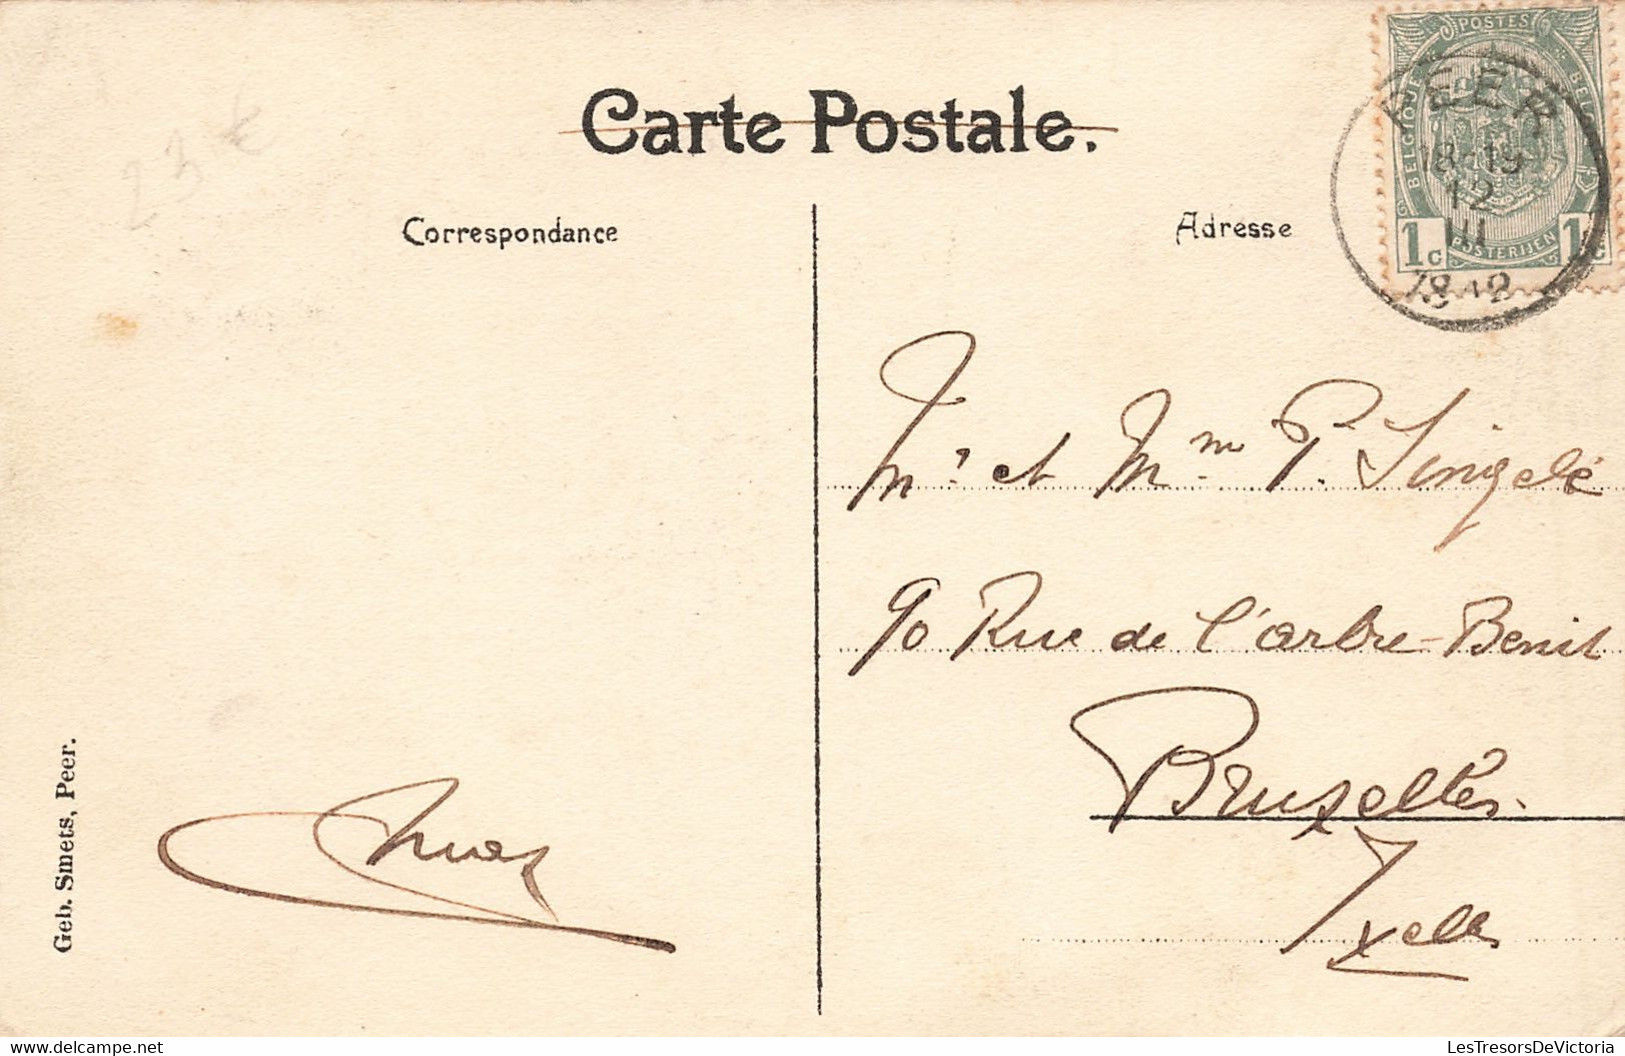 Carte Postale.
23 €
Correspondance
Adresse
POSTES
BELGIQUE
BELGIË
1c POSTERIJEN 1c
PEER
18-19
12
III
1812
Mr. et Mme P. Singelé
90 Rue de l'arbre-Benit
Bruxelles.
Ixelles
Geb. Smets, Peer.
LesTresorsDeVictoria